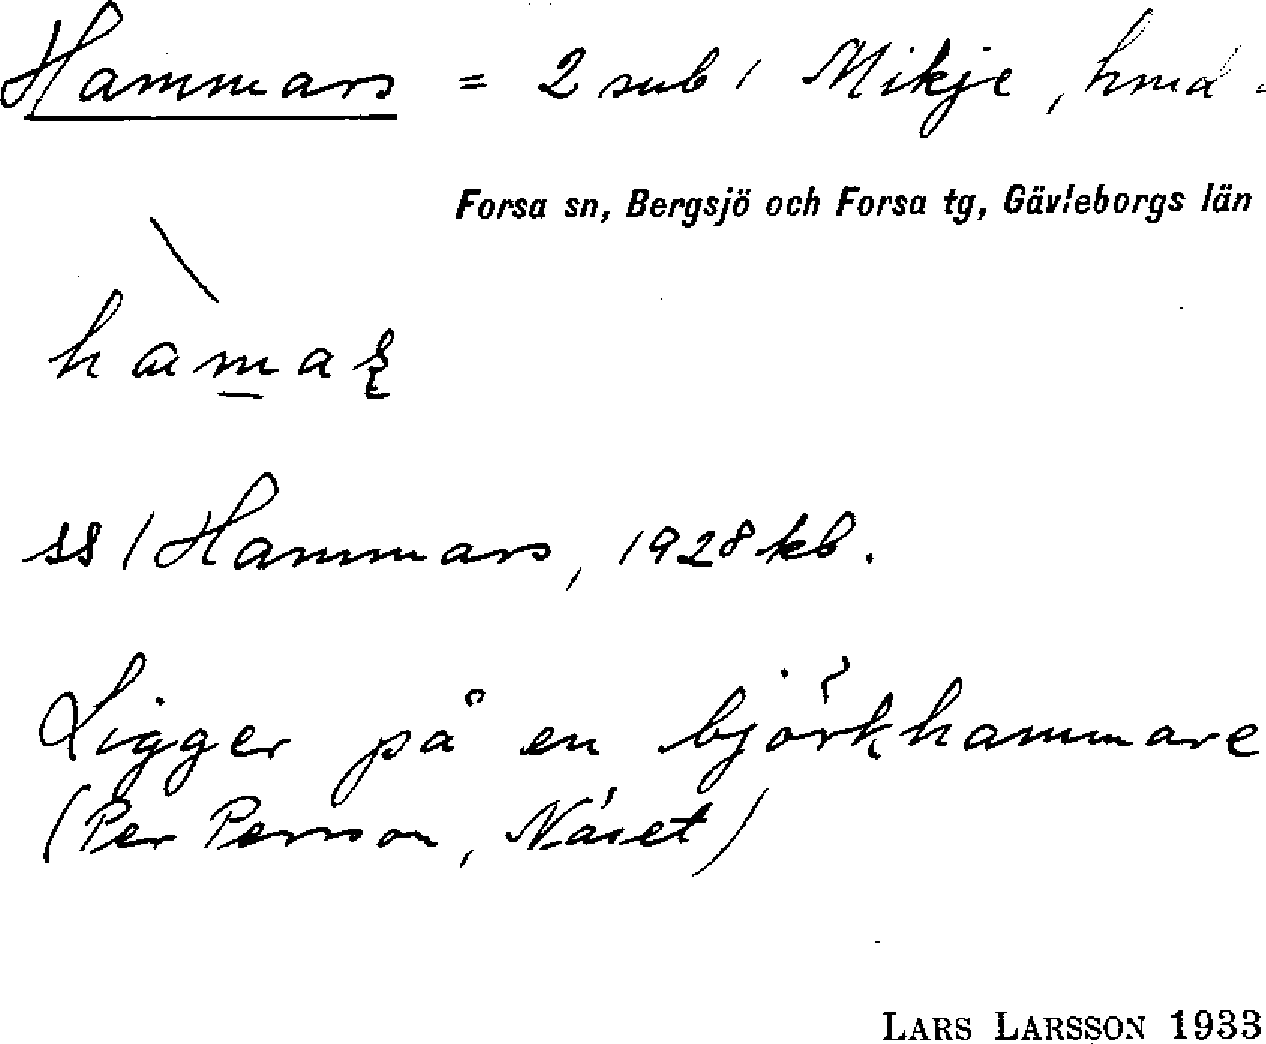 Hammars = 2 sub / Mikje, hmd.
Forsa sn, Bergsjö och Forsa tg, Gävleborgs län
hamaʂ
ss / Hammars, 1928 kb.
Ligger på en björkhammare
(Per Persson, Näset)
LARS LARSSON 1933